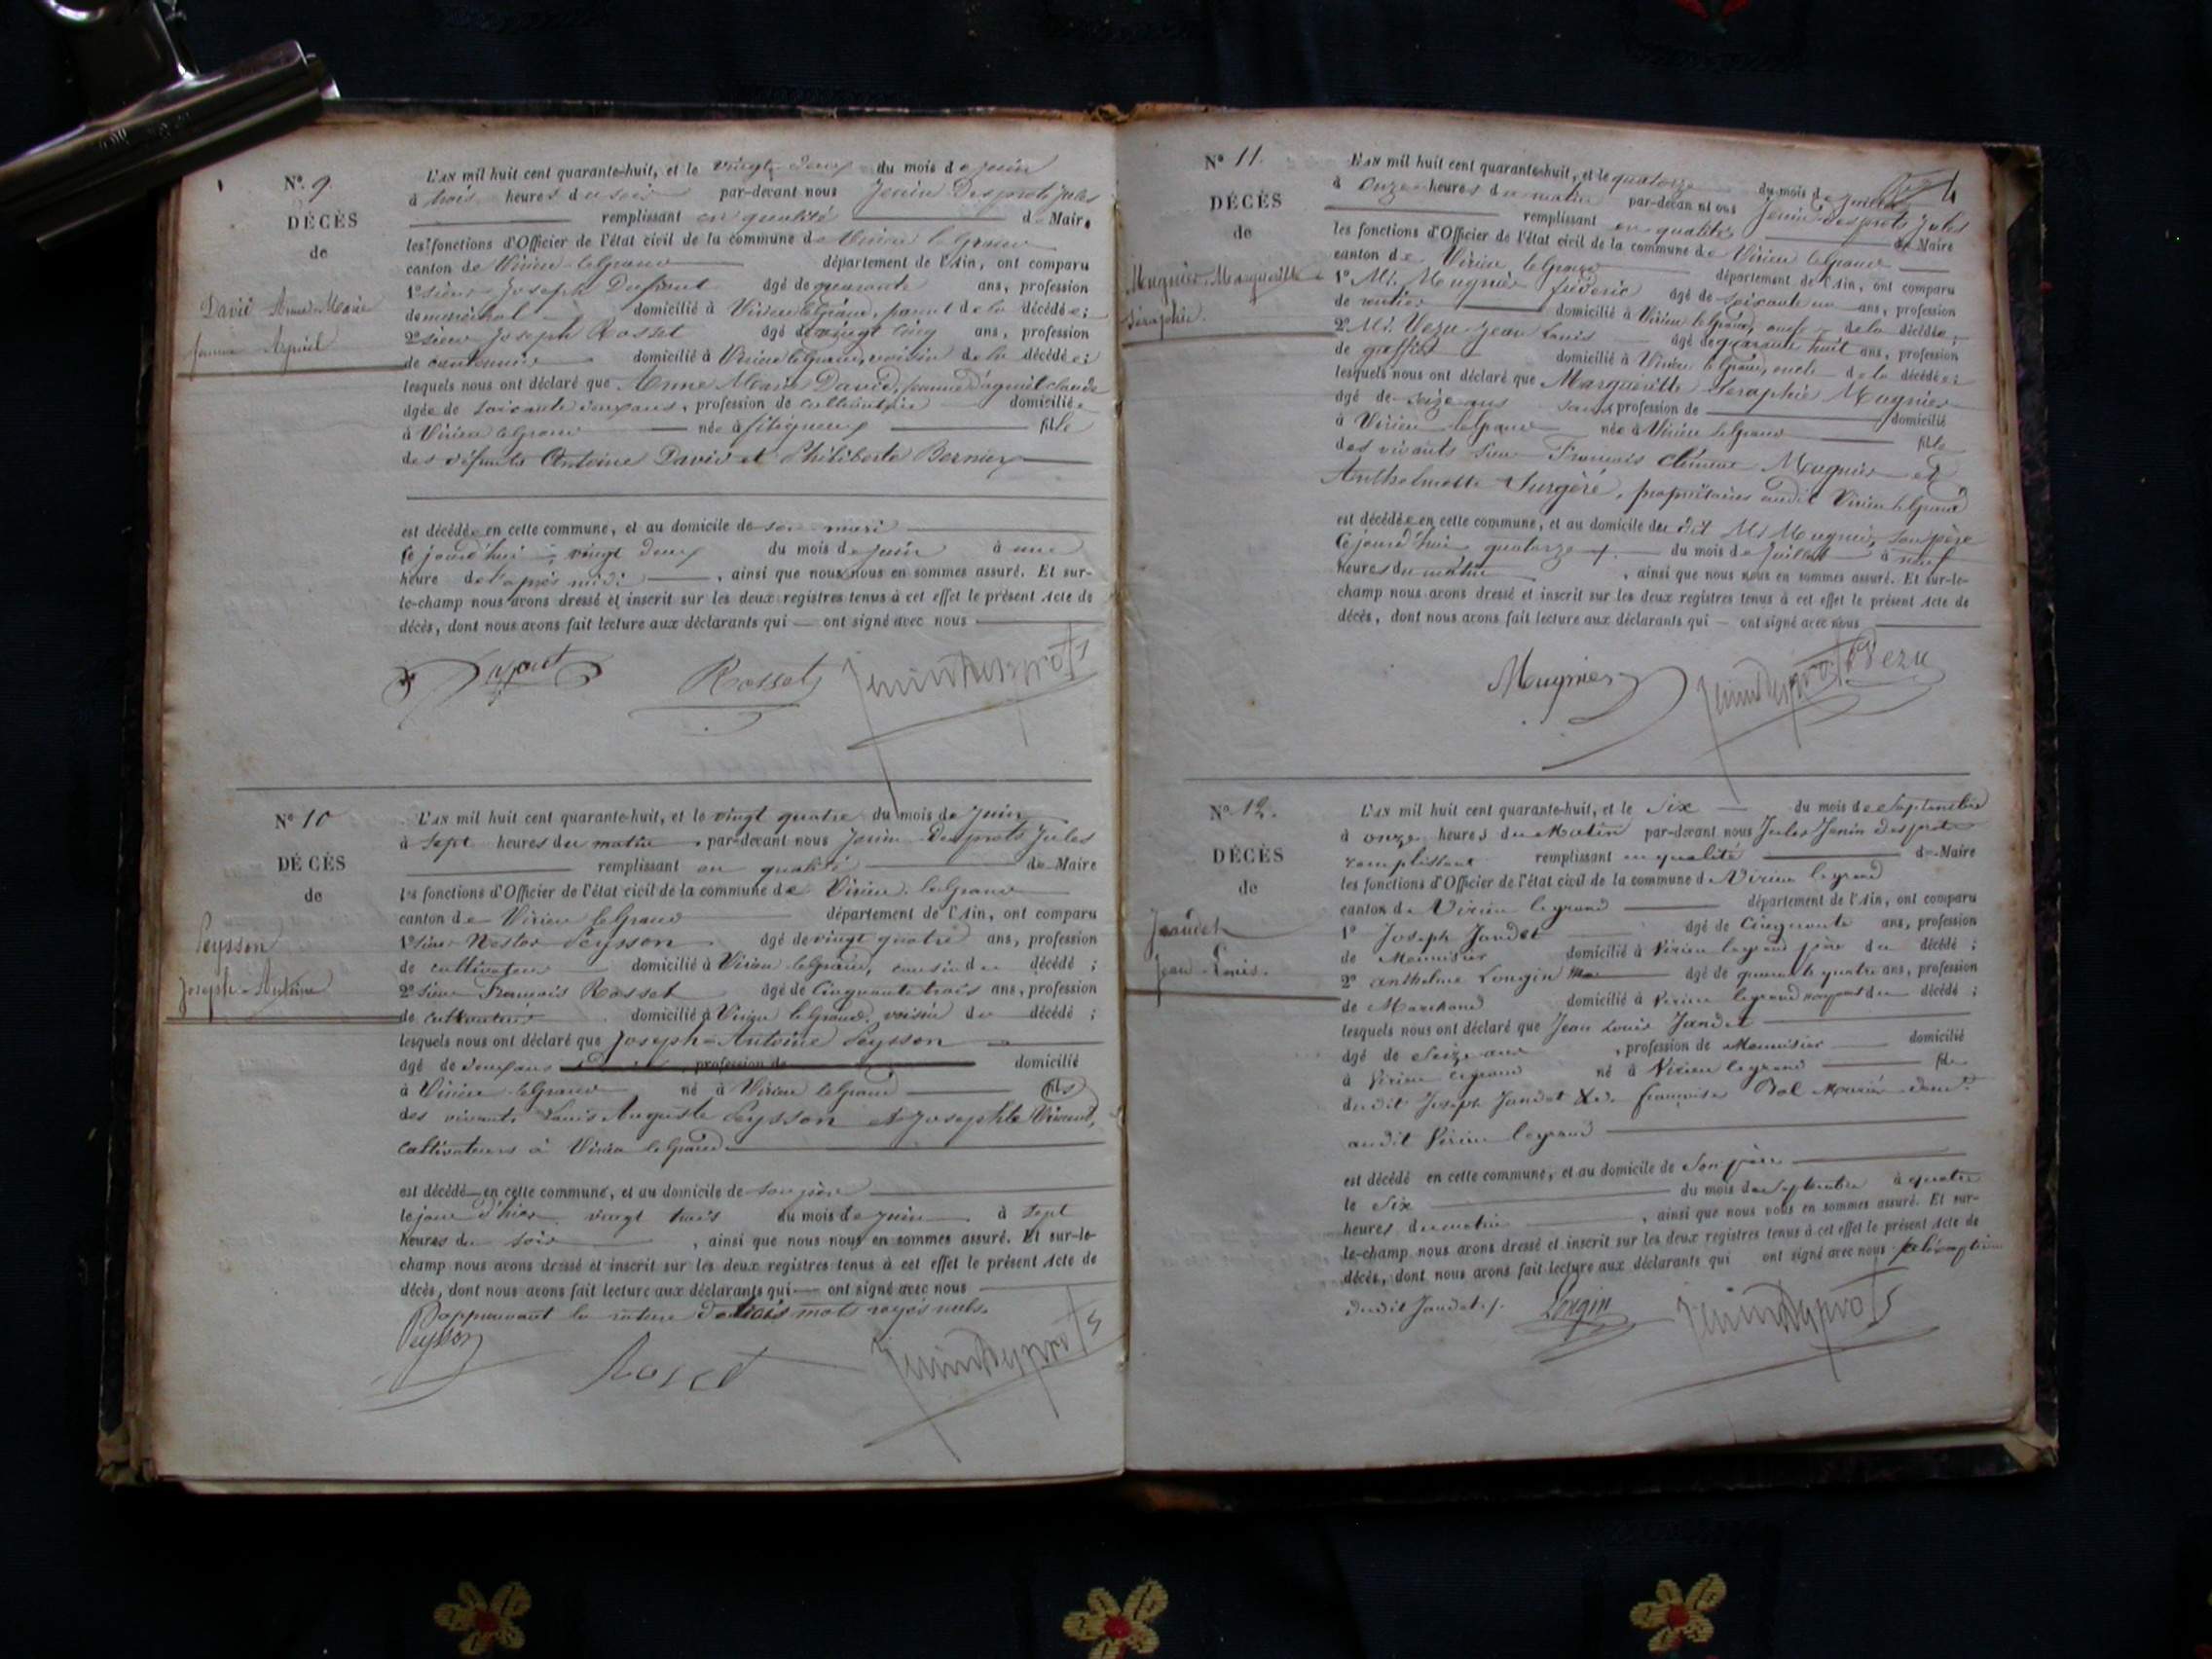 N° 9.
DÉCÈS
de
David Anne-Marie
femme
L'AN mil huit cent quarante-huit, et le vingt deux du mois de juin
à trois heures du soir par-devant nous Jenin Desprots Jules
remplissant en qualité de Maire
les fonctions d'Officier de l'état civil de la commune de Virieu le Grand
canton de Virieu le Grand département de l'Ain, ont comparu
1° sieur Joseph Dupont âgé de quarante ans, profession
de maréchal domicilié à Virieu le Grand, parent de la décédée;
2° sieur Joseph Rosset âgé de vingt cinq ans, profession
de domicilié à Virieu le Grand, voisin de la décédée;
lesquels nous ont déclaré que Anne Marie David, femme d' claude
âgée de soixante deux ans, profession de cultivatrice domiciliée
à Virieu le Grand née à fitigneux fille
des défunts Antoine David et Philiberte Bernier
est décédée en cette commune, et au domicile de son mari
ce jourd'hui vingt deux du mois de juin à une
heure de l'après midi, ainsi que nous nous en sommes assuré. Et sur-
le-champ nous avons dressé et inscrit sur les deux registres tenus à cet effet le présent Acte de
décès, dont nous avons fait lecture aux déclarants qui — ont signé avec nous
Dupont Rosset Jenin Desprots
N° 10
DÉCÈS
de
Peysson
Joseph-Antoine
L'AN mil huit cent quarante-huit, et le vingt quatre du mois de juin
à sept heures du matin par-devant nous Jenin Desprots Jules
remplissant en qualité de Maire
les fonctions d'Officier de l'état civil de la commune de Virieu le Grand
canton de Virieu le Grand département de l'Ain, ont comparu
1° sieur Nestor Peysson âgé de vingt quatre ans, profession
de cultivateur domicilié à Virieu le Grand, cousin du décédé;
2° sieur François Rosset âgé de Cinquante trois ans, profession
de cultivateur domicilié à Virieu le Grand, voisin du décédé;
lesquels nous ont déclaré que Joseph-Antoine Peysson
âgé de deux ans profession de domicilié
à Virieu le Grand né à Virieu le Grand fils
des vivants Louis Auguste Peysson et Josephte Vincent,
cultivateurs à Virieu le Grand
est décédé en cette commune, et au domicile de son père
le jour d'hier vingt trois du mois de juin à sept
heures du soir, ainsi que nous nous en sommes assuré. Et sur-le-
champ nous avons dressé et inscrit sur les deux registres tenus à cet effet le présent Acte de
décès, dont nous avons fait lecture aux déclarants qui — ont signé avec nous
approuvant la rature de trois mots rayés nuls.
Peysson Rosset Jenin Desprots
4
N° 11.
DÉCÈS
de
Mugnier Marguerite
Séraphie.
L'AN mil huit cent quarante-huit, et le quatorze du mois de juillet
à onze heures du matin par-devant nous Jenin Desprots Jules
remplissant en qualité de Maire
les fonctions d'Officier de l'état civil de la commune de Virieu le Grand
canton de Virieu le Grand département de l'Ain, ont comparu
1° Mr. Mugnier fréderic âgé de soixante un ans, profession
de rentier domicilié à Virieu le Grand, oncle de la décédée;
2° Mr. Vezu Jean Louis âgé de quarante huit ans, profession
de greffier domicilié à Virieu le Grand, oncle de la décédée;
lesquels nous ont déclaré que Margueritte Seraphie Mugnier
âgé de seize ans sans profession de domicilié
à Virieu le Grand née à Virieu le Grand fille
des vivants Sieur François Clément Mugnier et
Anthelmette Surgère, propriétaires audit Virieu le Grand
est décédée en cette commune, et au domicile du dit Mr Mugnier, son père
Ce jourd'hui quatorze du mois de juillet à neuf
heures du matin, ainsi que nous nous en sommes assuré. Et sur-le-
champ nous avons dressé et inscrit sur les deux registres tenus à cet effet le présent Acte de
décès, dont nous avons fait lecture aux déclarants qui — ont signé avec nous
Mugnier Jenin Desprots Vezu
N° 12.
DÉCÈS
de
Jandet
Jean-Louis.
L'AN mil huit cent quarante-huit, et le Six du mois de Septembre
à onze heures du Matin par-devant nous Jules Jenin Desprots
remplissant remplissant en qualité de Maire
les fonctions d'Officier de l'état civil de la commune de Virieu legrand
canton de Virieu legrand département de l'Ain, ont comparu
1° Joseph Jandet âgé de Cinquante ans, profession
de Menuisier domicilié à Virieu legrand père du décédé;
2° Anthelme Longin âgé de quarante quatre ans, profession
de Marchand domicilié à Virieu legrand non parent du décédé;
lesquels nous ont déclaré que Jean Louis Jandet
âgé de Seize ans, profession de Menuisier domicilié
à Virieu legrand né à Virieu legrand fils
dudit Joseph Jandet & de françoise Bal
audit Virieu legrand
est décédé en cette commune, et au domicile de Son père
le Six du mois de Septembre à quatre
heures du matin, ainsi que nous nous en sommes assuré. Et sur-
le-champ nous avons dressé et inscrit sur les deux registres tenus à cet effet le présent Acte de
décès, dont nous avons fait lecture aux déclarants qui ont signé avec nous
dudit Jandet. Longin Jenin Desprots